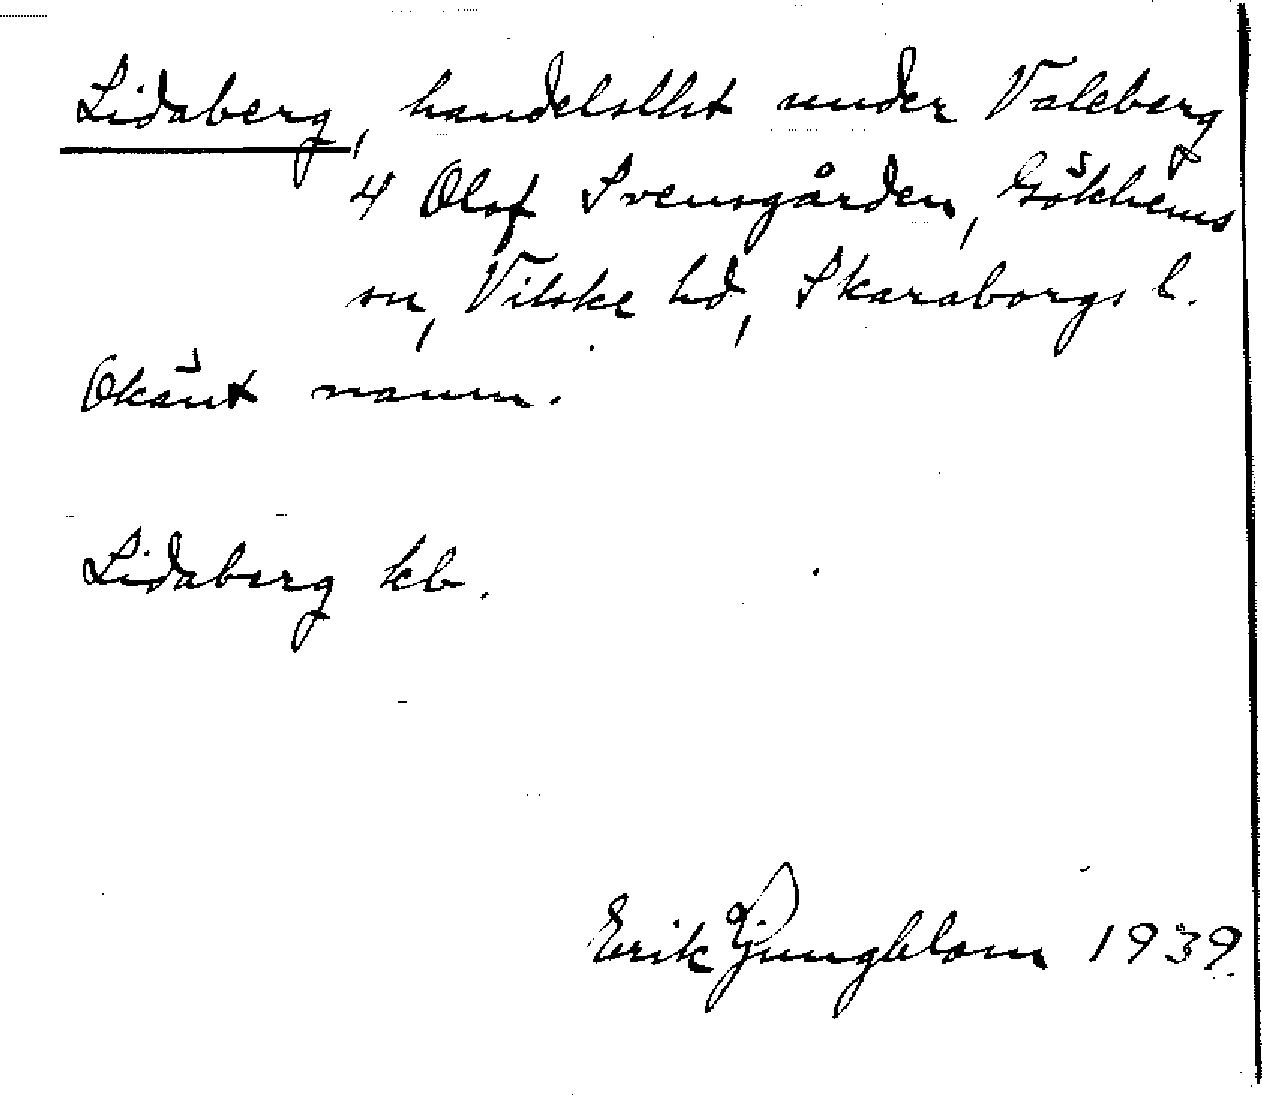 Lidaberg, handelsllht under Valeberg
4 Olof Svensgården, Gökhems
sn, Vilske hd, Skaraborgs l.
Okänt namn.
Lidaberg kb.
Erik Ljungblom 1939.